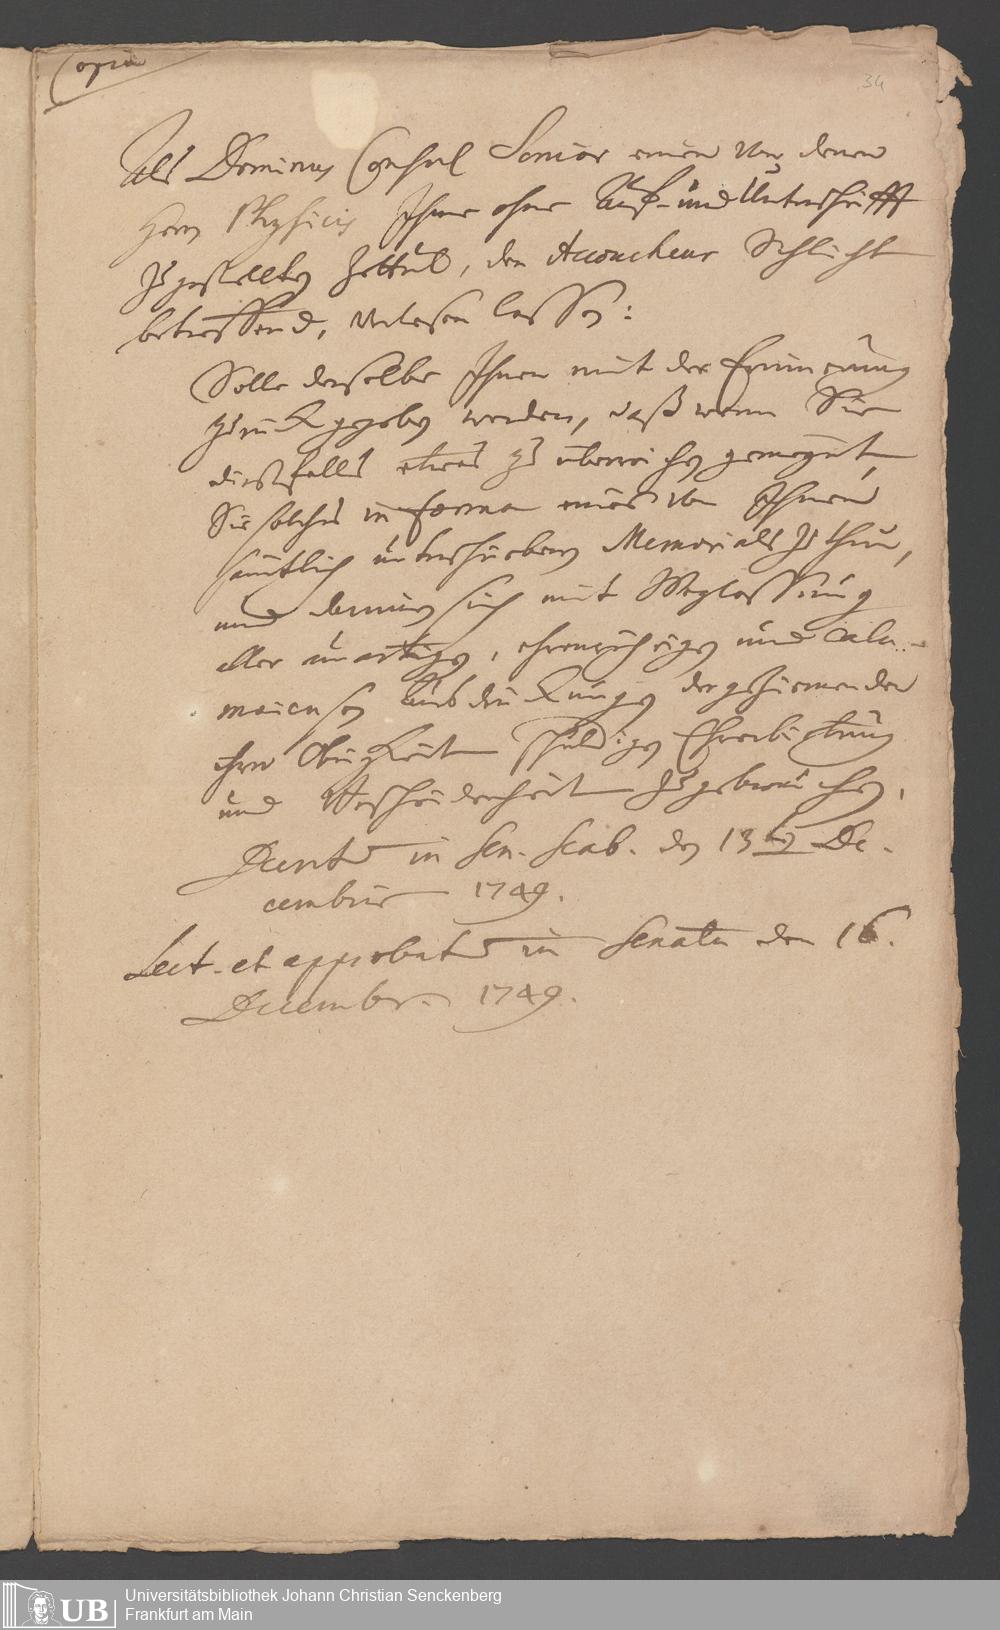 Copia
34
Als Dominus Consul Senior einen von denen
Herrn Physicis Ihme ohne Auf- und Unterschrifft
zugestellten Zettul, den Accoucheur Schlicht
betreffend, verlesen lassen:
Solle derselbe Ihnen mit der Erinnerung
zurückgegeben werden, daß wenn Sie
diesfalls etwas zu überreichen gemeynt,
Sie solches in forma eines von Ihnen
sämtlich unterschriebenen Memorials zu thun,
und darinnen sich mit Weglassung
aller unartigen, ehrenrührigen und calu-
mniosen Ausdrückungen der geziemenden
ihrer Obrigkeit schuldigen Ehrerbietung
und Bescheidenheit zu gebrauchen.
Decret. in Sen. Scab. den 13ten De-
cembris 1749.
Lect. et approbat. in Senatu den 16.
Decembr. 1749.
UB
Universitätsbibliothek Johann Christian Senckenberg
Frankfurt am Main